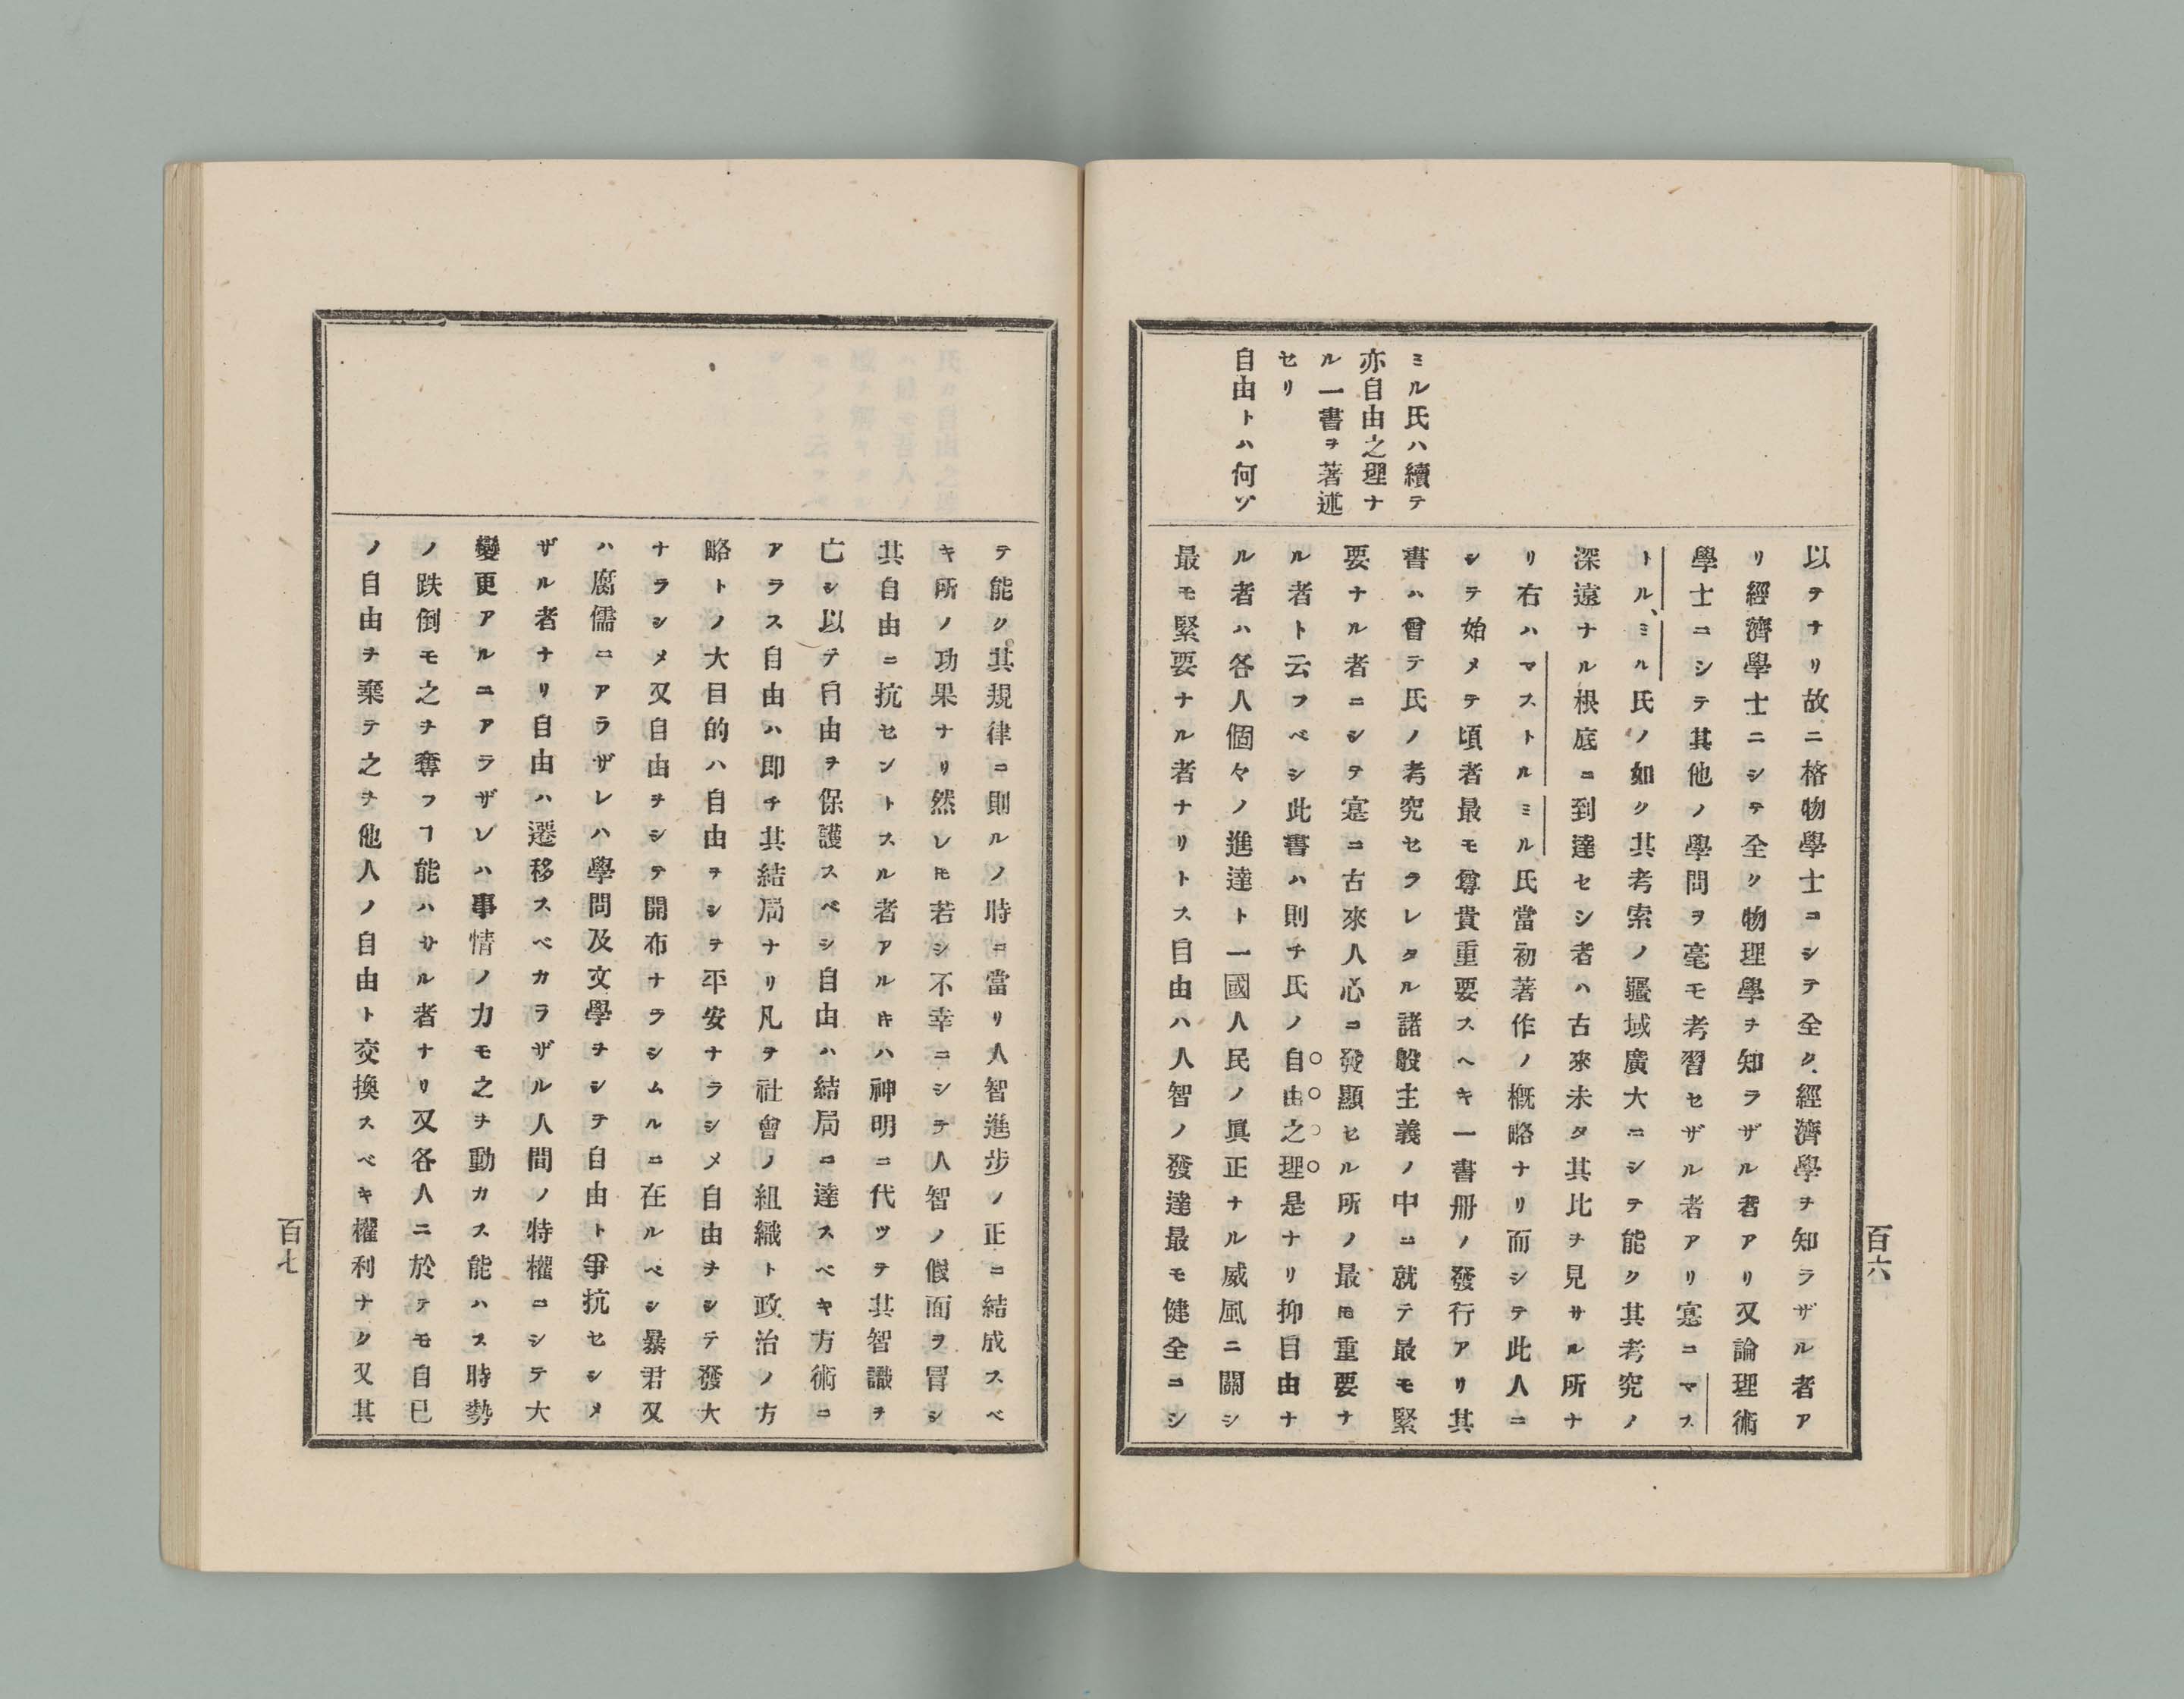 ミル氏ハ續テ
亦自由之理ナ
ル一書ヲ著述
セリ
自由トハ何ゾ
以テナリ故ニ格物學士ニシテ全ク經濟學ヲ知ラザル者ア
リ經濟學士ニシテ全ク物理學ヲ知ラザル者アリ又論理術
學士ニシテ其他ノ學問ヲ毫モ考習セザル者アリ寔ニマス
トル、ミル氏ノ如ク其考索ノ疆域廣大ニシテ能ク其考究ノ
深遠ナル根底ニ到達セシ者ハ古來未タ其比ヲ見サル所ナ
リ右ハマストルミル氏當初著作ノ概略ナリ而シテ此人ニ
シテ始メテ頃者最モ尊貴重要スヘキ一書册ノ發行アリ其
書ハ曾テ氏ノ考究セラレタル諸般主義ノ中ニ就テ最モ緊
要ナル者ニシテ寔ニ古來人心ニ發顯セル所ノ最モ重要ナ
ル者ト云フベシ此書ハ則チ氏ノ自由之理是ナリ抑自由ナ
ル者ハ各人個々ノ進達ト一國人民ノ眞正ナル威風ニ關シ
最モ緊要ナル者ナリトス自由ハ人智ノ發達最モ健全ニシ
百六
テ能ク其規律ニ則ルノ時ニ當リ人智進步ノ正ニ結成スベ
キ所ノ功果ナリ然レ𪜈若シ不幸ニシテ人智ノ假面ヲ冒シ
其自由ニ抗セントスル者アルキハ神明ニ代ツテ其智識ヲ
亡シ以テ自由ヲ保護スベシ自由ハ結局ニ達スベキ方術ニ
アラス自由ハ即チ其結局ナリ凡テ社會ノ組織ト政治ノ方
略トノ大目的ハ自由ヲシテ平安ナラシメ自由ヲシテ發大
ナラシメ又自由ヲシテ開布ナラシムルニ在ルベシ暴君又
ハ腐儒ニアラザレハ學問及文學ヲシテ自由ト爭抗セシメ
ザル者ナリ自由ハ遷移スベカラザル人間ノ特權ニシテ大
變更アルニアラザレハ事情ノ力モ之ヲ動カス能ハス時勢
ノ跌倒モ之ヲ奪フヿ能ハサル者ナリ又各人ニ於テモ自己
ノ自由ヲ棄テ之ヲ他人ノ自由ト交換スベキ權利ナク又其
百七